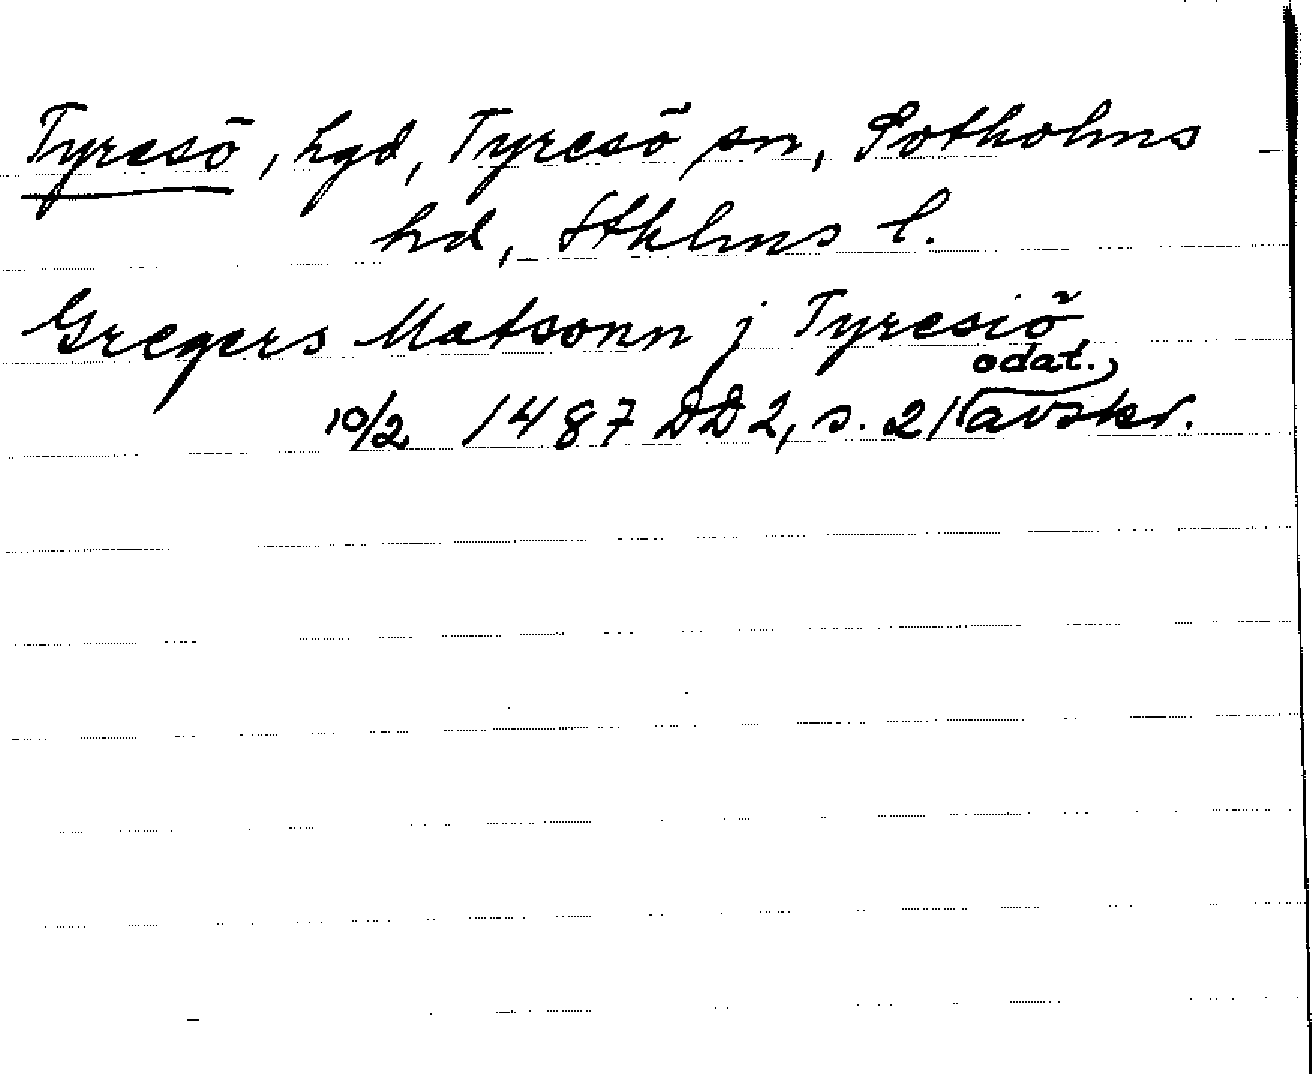 Tyresö, hgd, Tyresö sn, Sotholms
hd, Sthlms l.
Gregers Matsonn j Tyresiö
10/2 1487 DD2, s. 21 (odat. avskr.